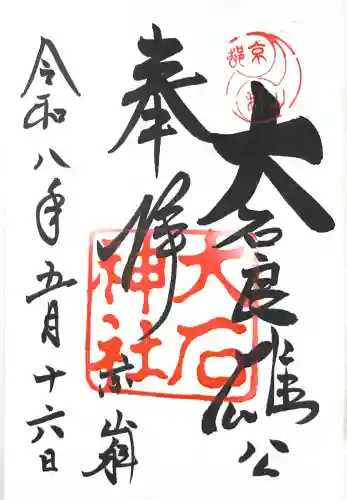 大石良雄公
奉拝
大石
神社
令和八年五月十六日
京都
山科